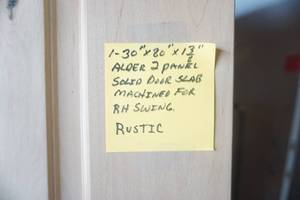 1-30"x80"x1 3/8"
ALDER 2 PANEL
SOLID DOOR SLAB
MACHINED FOR
RH SWING.
RUSTIC